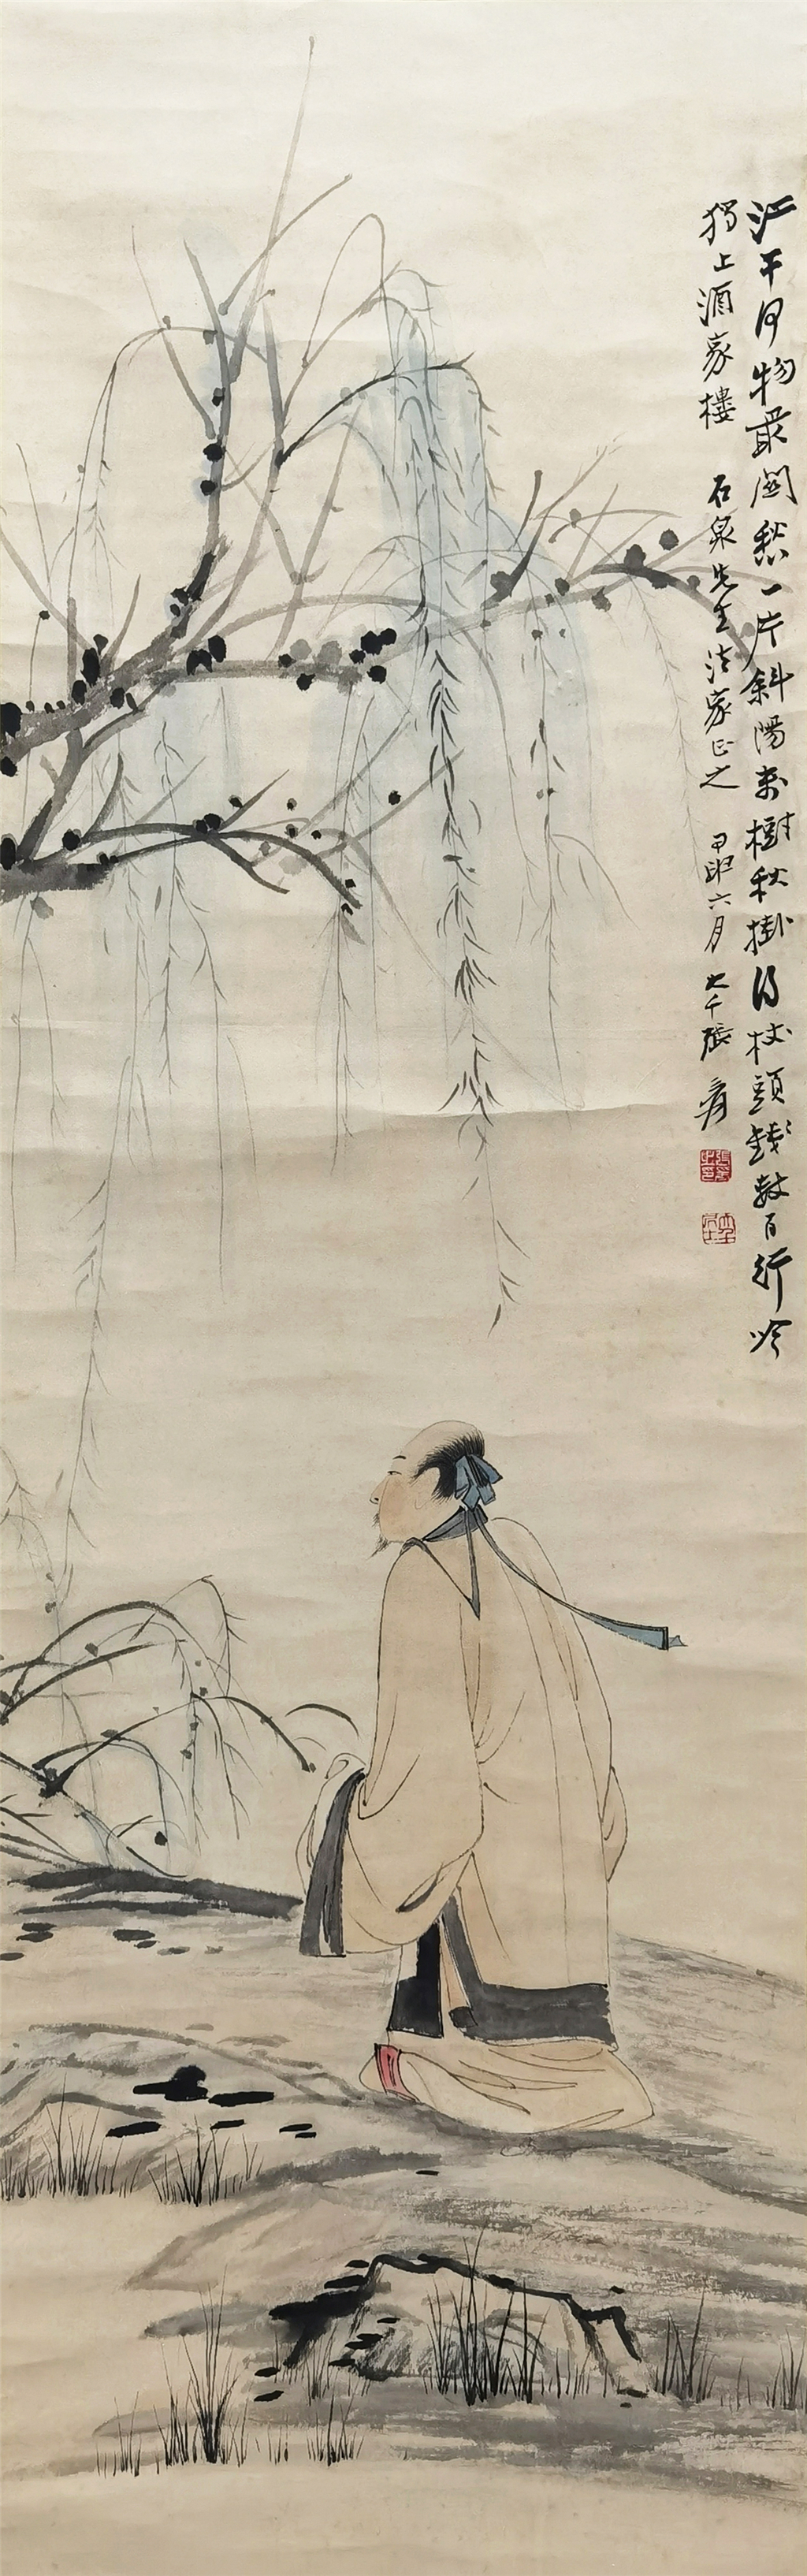 江干何物最關愁一片斜陽萬樹秋掛得杖頭錢數百行吟
獨上酒家樓 石泉先生法家正之 甲申六月 大千張爰
張爰
大千